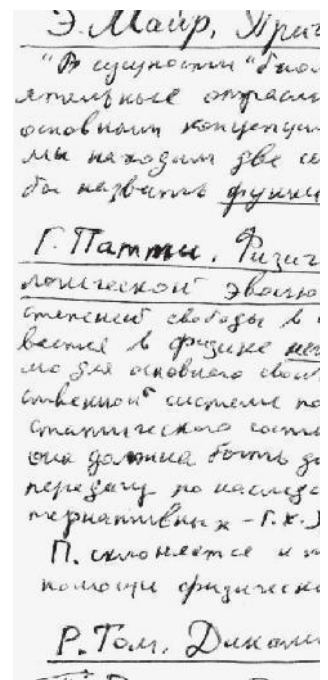 Э. Майр. Прич
"В сущности "биол
ятельные отрасли
основными концепци
мы находим две со
бы назвать функц
Г. Патти. Физич
логической эволю
степеней свободы в
вается в физике нег
мо для основного свой
ственной" системе по
статического состо
она должна быть до
передачу по наслед
тернативных – Г.Х.)
П. склоняется к
помощи физическ
Р. Том. Динами